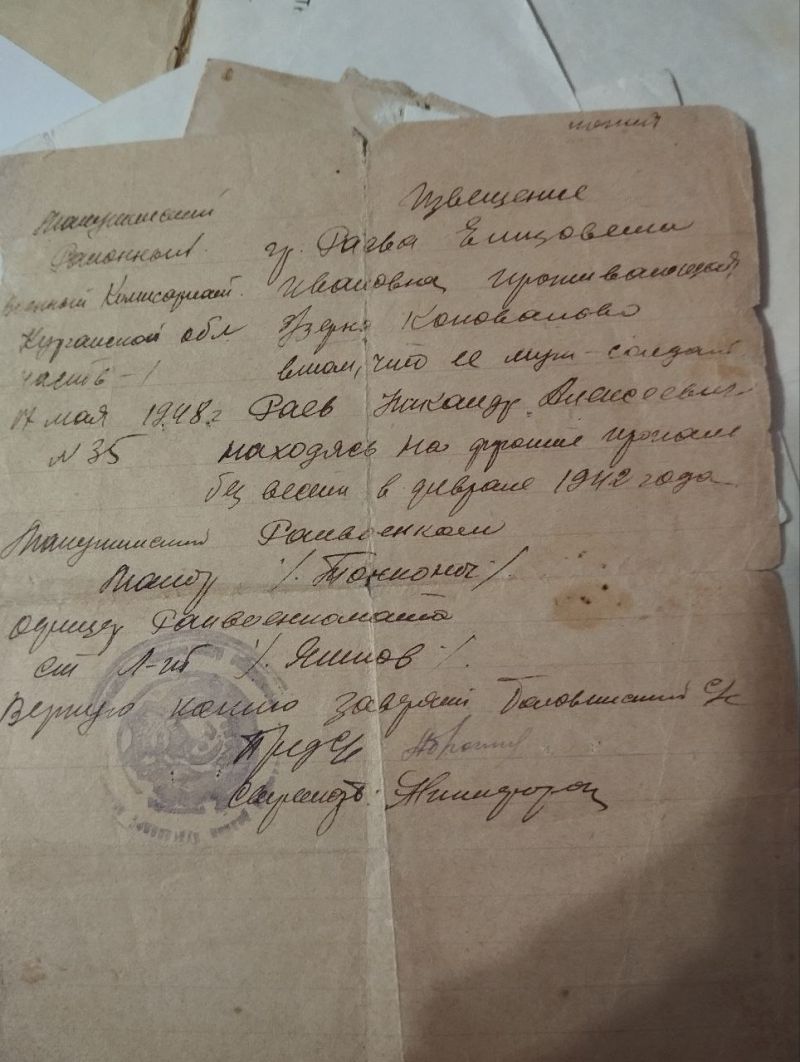 копия
Извещение
Макушинский
Районный
военный Комисариат
Курганской обл
часть-1
17 мая 1948 г
N 35
гр. Раева Елизовета
Ивановна, проживающая
Озерко Коновалово
в том, что ее муж-солдат
Раев Никандр Алексеевич
находясь на фронте пропал
без вести в феврале 1942 года
Макушинский Райвоенком
офицер Райвоенкомата
ст л-нт /. Яшпов /.
Верную копию заверяет Головинский с/с
Пред с/с
Секретарь: